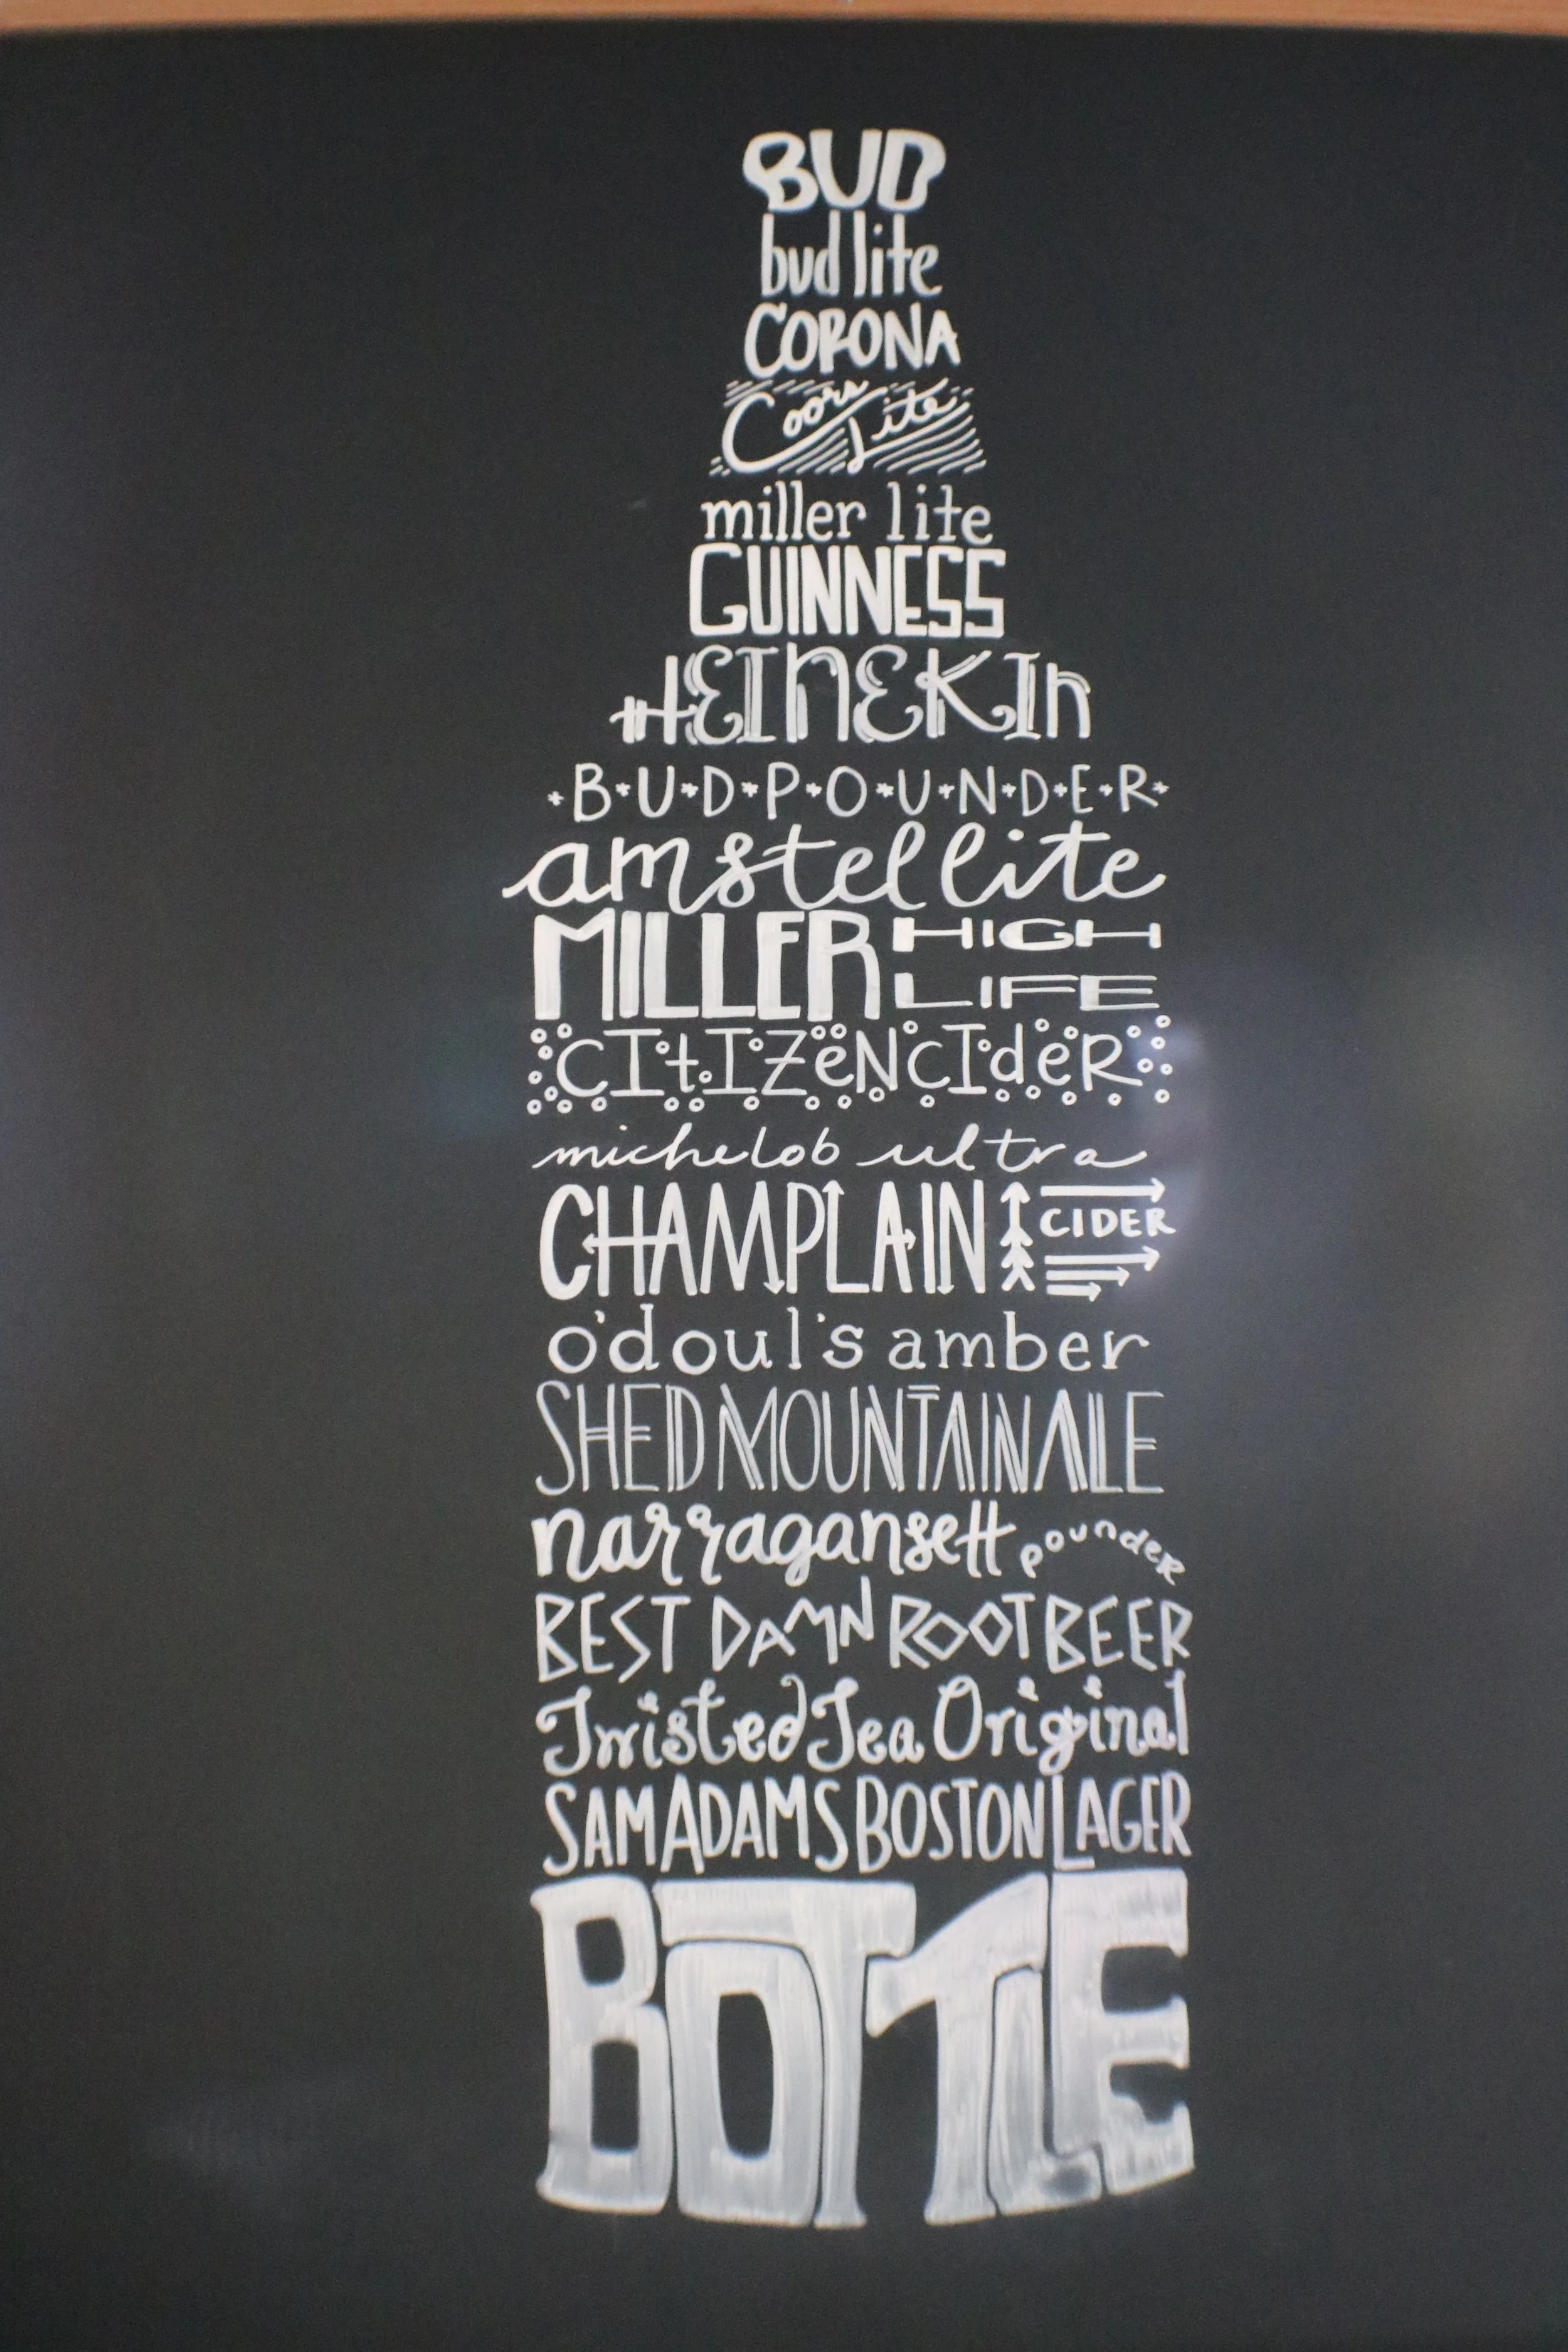 BUD
bud lite
CORONA
Coors Lite
miller lite
GUINNESS
HEINEKIn
B•U•D•P•O•U•N•D•E•R
amstel lite
MILLER HIGH LIFE
CItIZeNCIdeR
michelob ultra
CHAMPLAIN CIDER
o'doul's amber
SHED MOUNTAIN ALE
narragansett pounder
BEST DAMN ROOT BEER
Twisted Tea Original
SAM ADAMS BOSTON LAGER
BOTTLE